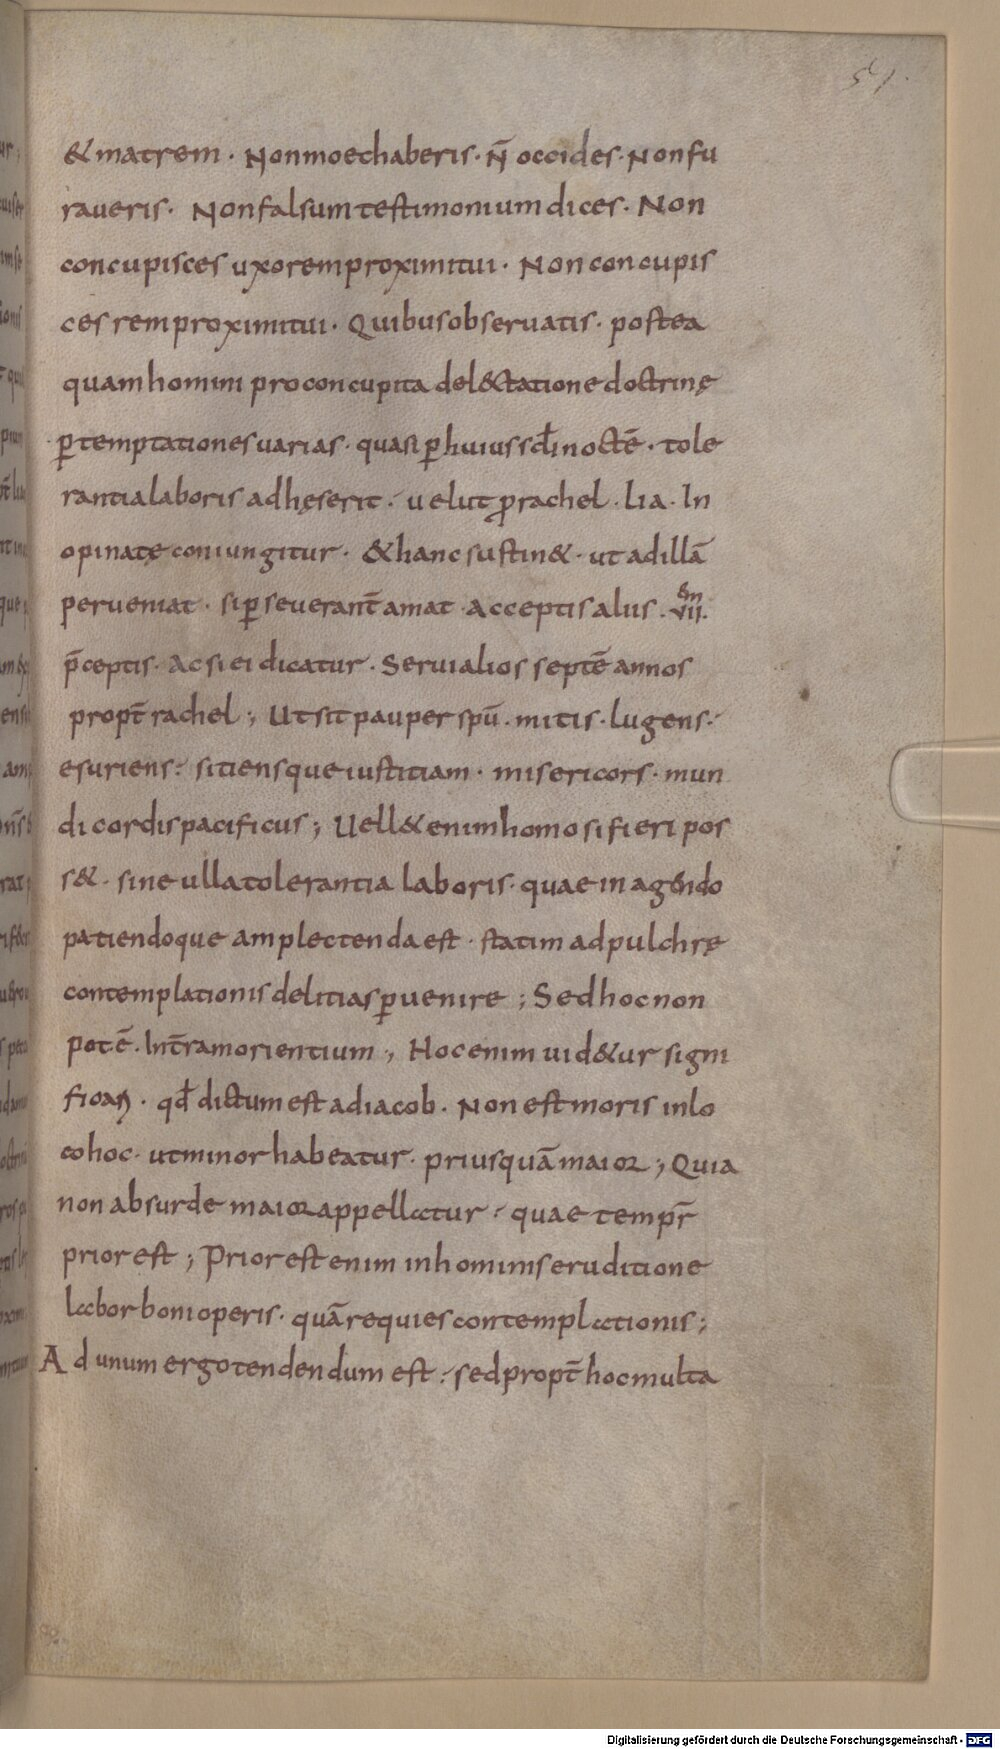 51.
& matrem · Non moechaberis · N̄ occides · Non fu
raueris · Non falsum testimonium dices · Non
concupisces uxorem proximi tui · Non concupis
ces rem proximi tui · Quibus obseruatis · postea
quam homini pro concupita del&tatione doctrinę
ꝑ temptationes uarias · quasi ꝑ huius scł̄i noctē · tole
rantia laboris adhęserit · uelut ꝓ rachel · lia · In
opinatę coniungitur · & hanc sustin& · ut ad illā
perueniat · si ꝑseuerant̄ amat · acceptis alus · VII ·
p̄ceptis · ac si ei dicatur · Serui alios septē annos
propt̄ rachel ; Ut sit pauper spū · mitis · lugens ·
esuriens · sitiensque iustitiam · misericors · mun
di cordis pacificus ; Uell& enim homo si fieri pos
s& · sine ulla tolerantia laboris · quae in agendo
patiendoque amplectenda est · statim ad pulchrę
contemplationis delitias ꝑuenire ; Sed hoc non
potē · In t̄ra morientium ; Hoc enim uid&ur signi
qđ dictum est ad iacob · Non est moris in lo
co hoc · ut minor habeatur · priusquā maior ; Quia
non absurde maior appellatur · quae tempr̄
prior est ; Prior est enim in hominis eruditione
labor boni operis · quā requies contemplationis ;
Ad unum ergo tendendum est · sed propt̄ hoc multa
Digitalisierung gefördert durch die Deutsche Forschungsgemeinschaft - DFG